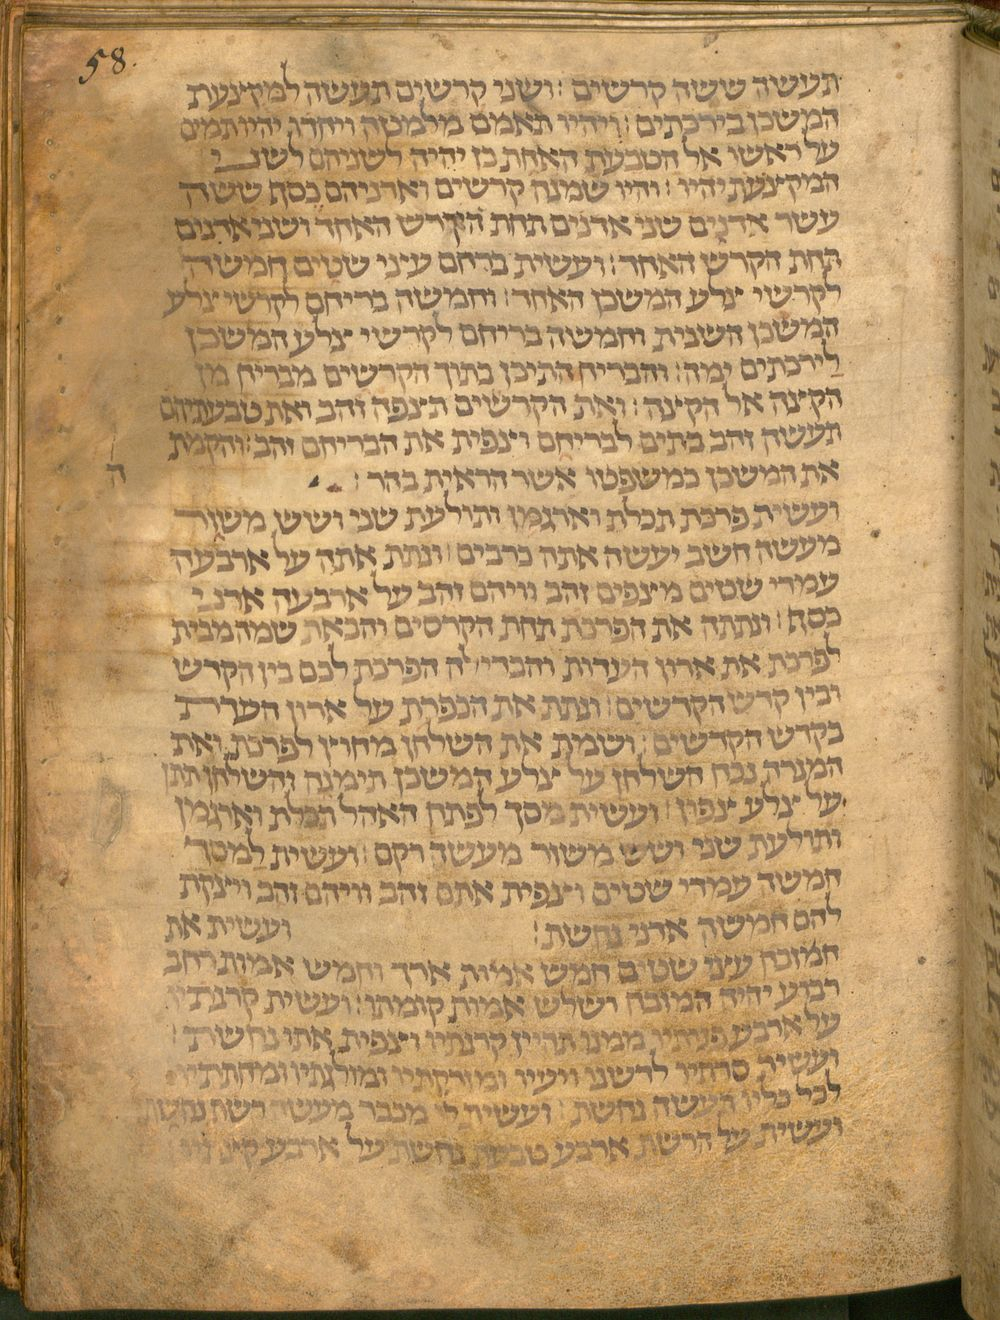 58.
תעשה ששה קרשים : ושני קרשים תעשה למקצעת
המשכן בירכתים : ויהיו תאמם מלמטה ויחדו יהיו תמים
על ראשו אל הטבעת האחת כן יהיה לשניהם לשני
המקצעת יהיו : והיו שמנה קרשים ואדניהם כסף ששה
עשר אדנים שני אדנים תחת הקרש האחד ושני אדנים
תחת הקרש האחד : ועשית בריחם עצי שטים חמשה
לקרשי צלע המשכן האחד : וחמשה בריחם לקרשי צלע
המשכן השנית וחמשה בריחם לקרשי צלע המשכן
לירכתים ימה : והבריח התיכן בתוך הקרשים מבריח מן
הקצה אל הקצה : ואת הקרשים תצפה זהב ואת טבעתיהם
תעשה זהב בתים לבריחם וצפית את הבריחם זהב : והקמת
את המשכן כמשפטו אשר הראית בהר :
ה
ועשית פרכת תכלת וארגמן ותולעת שני ושש משזר
מעשה חשב יעשה אתה כרבים : ונתת אתה על ארבעה
עמודי שטים מצפים זהב וויהם זהב על ארבעה אדני
כסף : ונתתה את הפרכת תחת הקרסים והבאת שמה מבית
לפרכת את ארון העדות והבדילה הפרכת לכם בין הקדש
ובין קדש הקדשים : ונתת את הכפרת על ארון העדת
בקדש הקדשים : ושמת את השלחן מחוץ לפרכת ואת
המנרה נכח השלחן על צלע המשכן תימנה והשלחן תתן
על צלע צפון : ועשית מסך לפתח האהל תכלת וארגמן
ותולעת שני ושש משזר מעשה רקם : ועשית למסך
חמשה עמודי שטים וצפית אתם זהב וויהם זהב ויצקת
להם חמשה אדני נחשת : ועשית את
המזבח עצי שטים חמש אמות ארך וחמש אמות רחב
רבוע יהיה המזבח ושלש אמות קומתו : ועשית קרנתיו
על ארבע פנתיו ממנו תהיין קרנתיו וצפית אתו נחשת :
ועשית סרתיו לדשנו ויעיו ומזרקתיו ומזלגתיו ומחתתיו
לכל כליו תעשה נחשת : ועשית לו מכבר מעשה רשת נחשת
ועשית על הרשת ארבע טבעת נחשת על ארבע קצותיו :